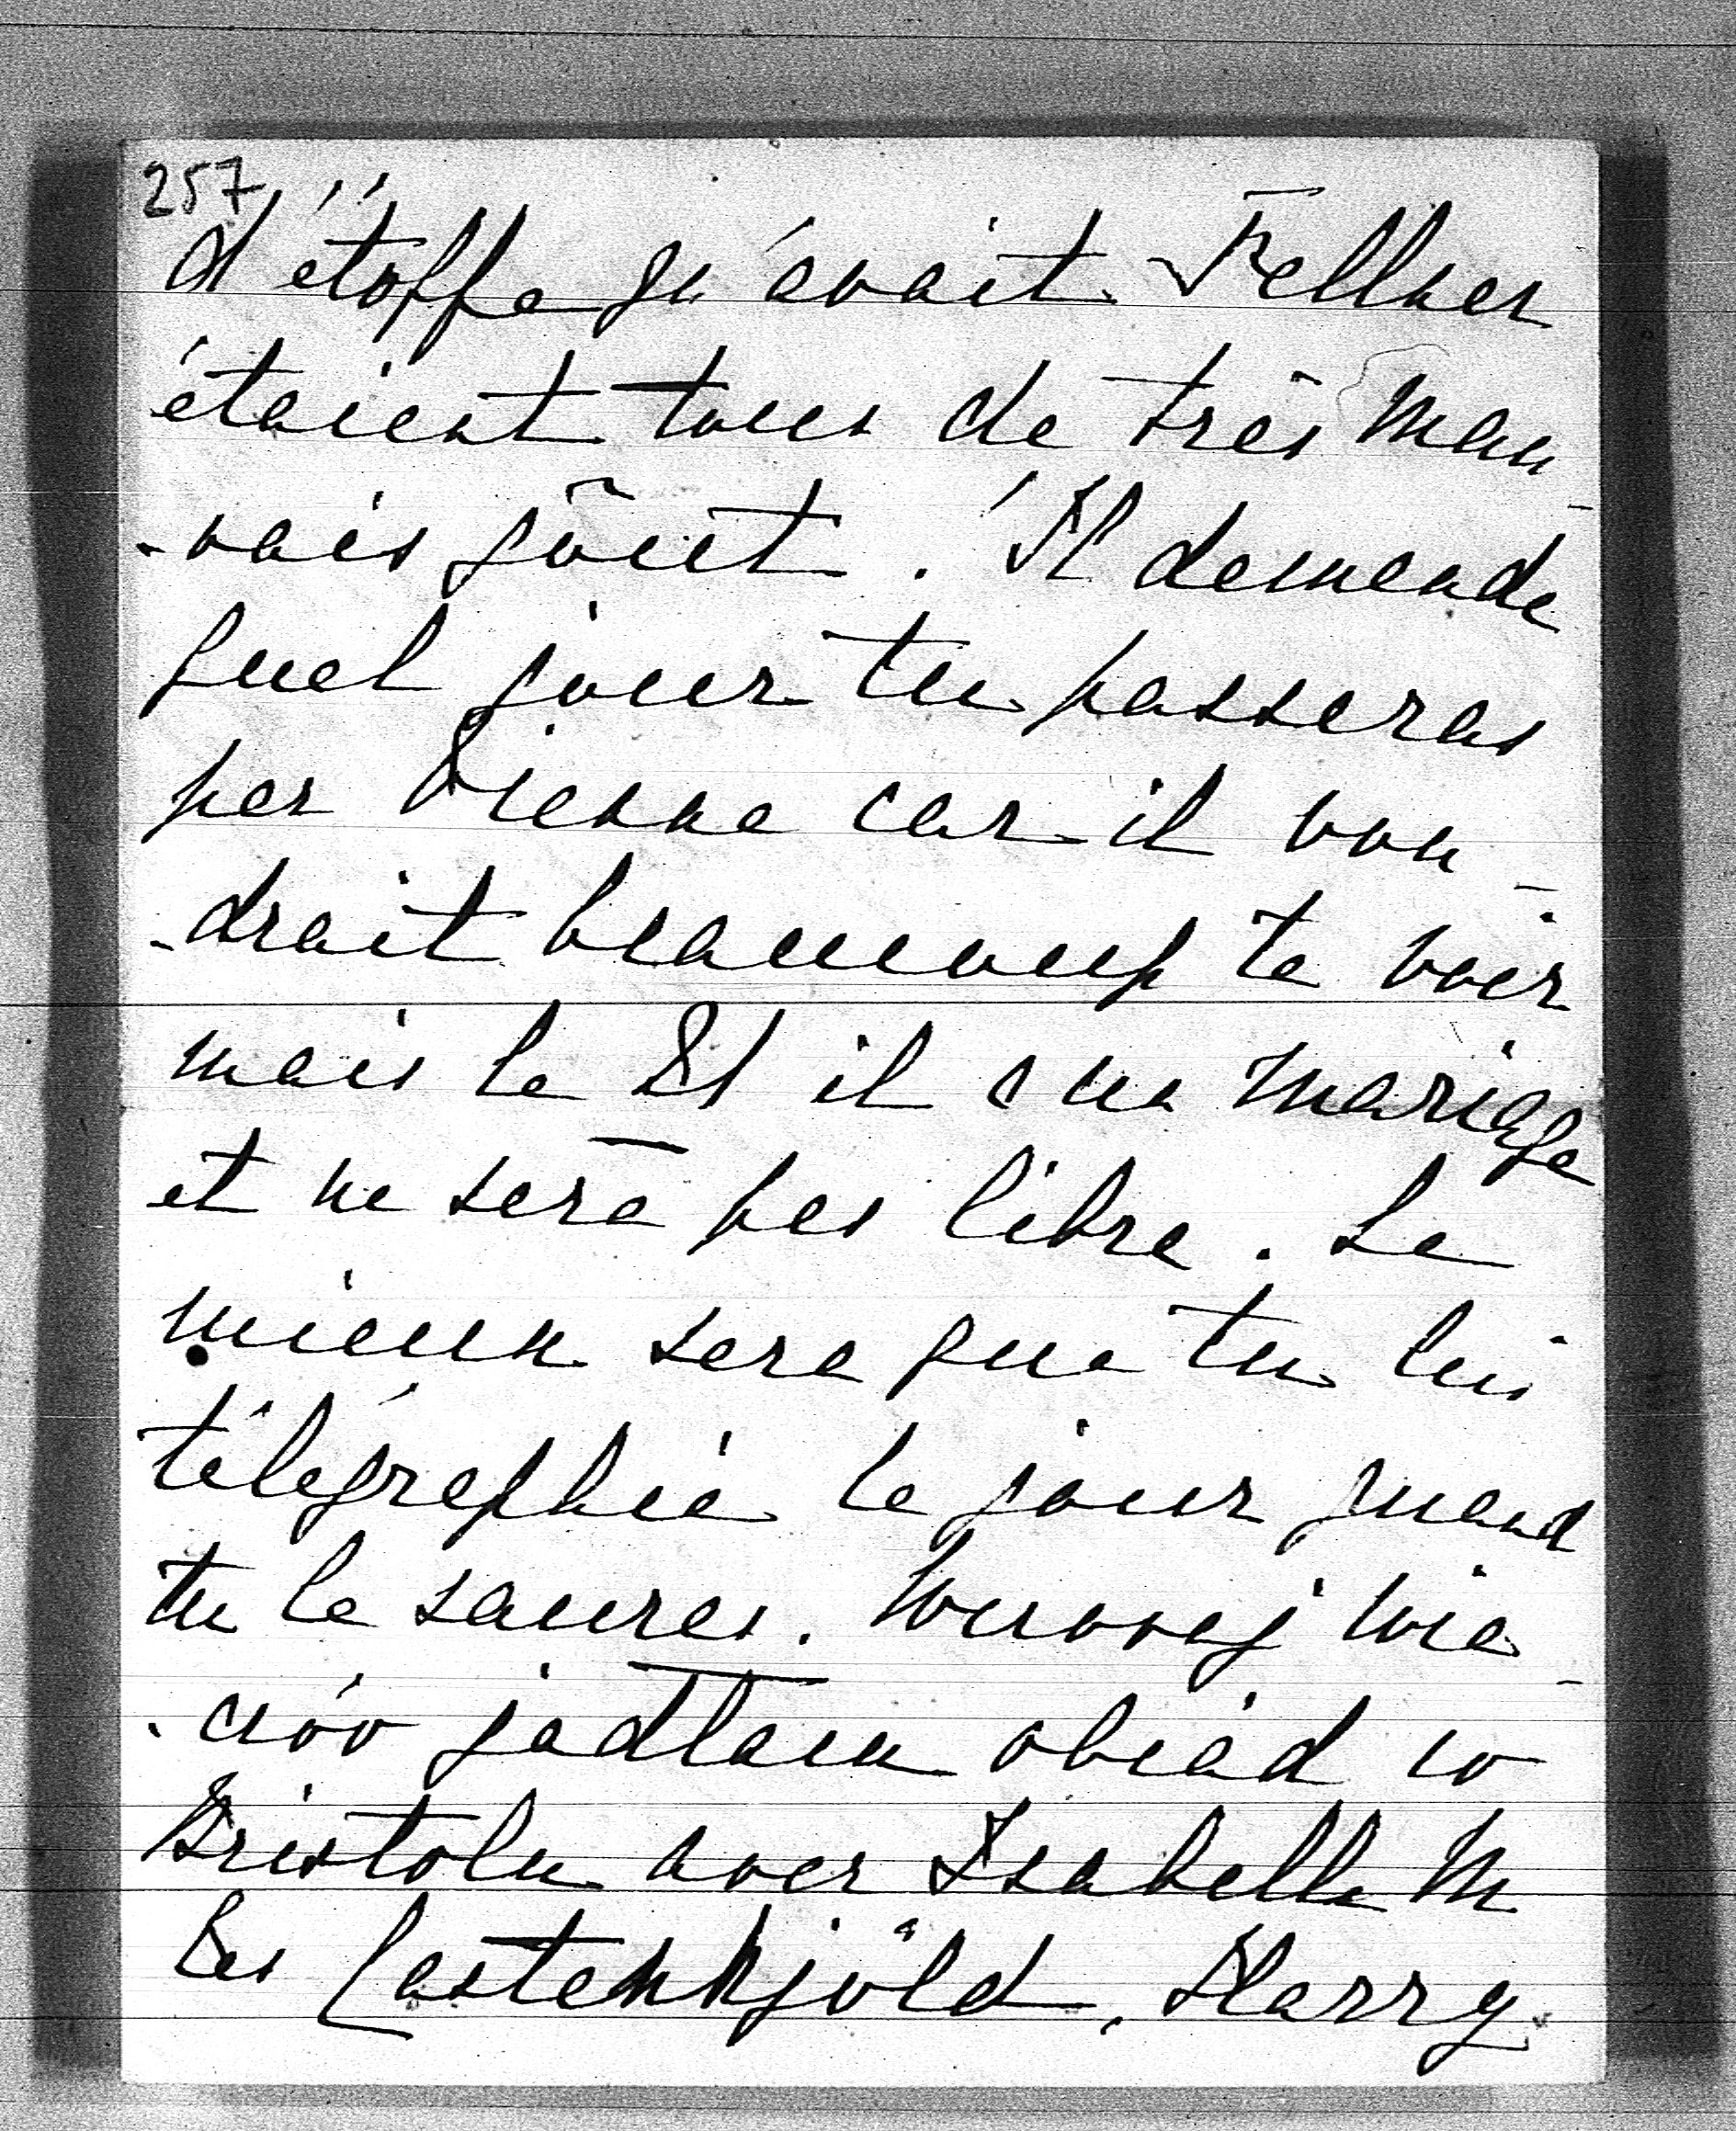 257
d'étoffe qu'avait Fellner
étaient tous de très mau-
-vais goût. Il demande
quel jour tu passeras
par Vienne car il vou-
-drait beaucoup te voir
mais le 21 il a un mariage
et ne sera pas libre. Le
mieux sera que tu lui
télégraphie le jour quand
tu le sauras. Wczoraj wie-
-czór jadłam obiad w
Bristolu avec Isabelle M
les Castenkjöld, Harry